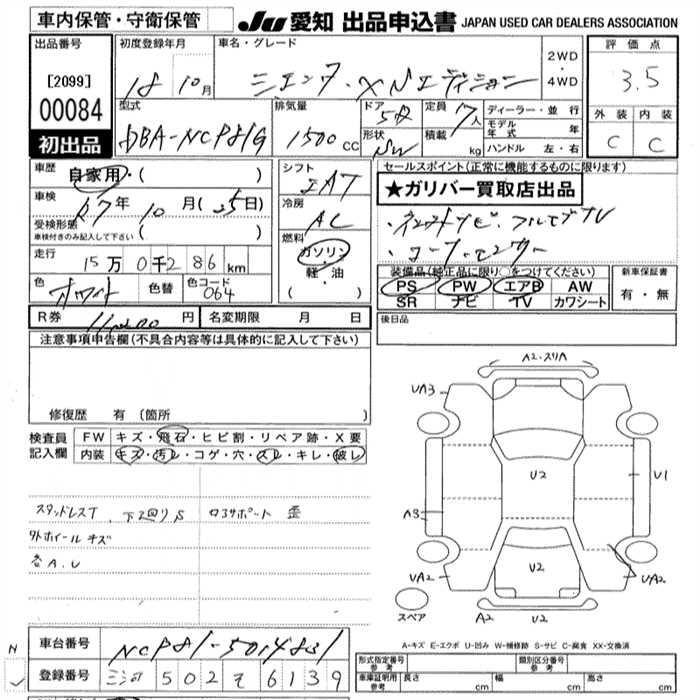 車内保管・守衛保管 JU 愛知 出品申込書 JAPAN USED CAR DEALERS ASSOCIATION
出品番号 初度登録年月 車名・グレード 評価点
[2099] 18 10月 シエンタ・X Nエディション 2WD・4WD 3.5
00084 型式 排気量 ドア 5D 定員 7人 ディーラー・並行 外装 内装
初出品 DBA-NCP81G 1500cc 形状 SW 積載 kg モデル年式 年 C C
ハンドル 左・右
車歴 自家用・( ) シフト IAT セールスポイント(正常に機能するものに限ります)
車検 R7年 10月(25日) 冷房 AC ★ガリバー買取店出品
受検形態
車検付きのみ記入して下さい ( ) 燃料 ガソリン
走行 15万0千286km 軽・油 装備品(純正品に限り○)をつけてください 新車保証書
色 ホワイト 色替 色コード 064 ( ) PS PW エアB AW 有・無
SR ナビ TV カワシート
R券 円 名変期限 月 日 後日品
注意事項申告欄(不具合内容等は具体的に記入して下さい)
修復歴 有(箇所
検査員 FW キズ・飛石・ヒビ割・リペア跡・X要
記入欄 内装 キズ・汚レ・コゲ・穴・スレ・キレ・破レ
スタッドレスT 下廻りS コアサポート 歪
外ホイールキズ
各A.U
A2・スリA
UA3
U2 U1
A3
UA2 U2 UA2
スペア A2 U2
A-キズ E-エクボ U-凹み W-補修跡 S-サビ C-腐食 XX-交換済
N 車台番号 NCP81-5014831
登録番号 三河 502 そ 6139
形式指定番号 参考 類別区分番号 参考
車庫証明用 参考 長さ cm 幅 cm 高さ cm